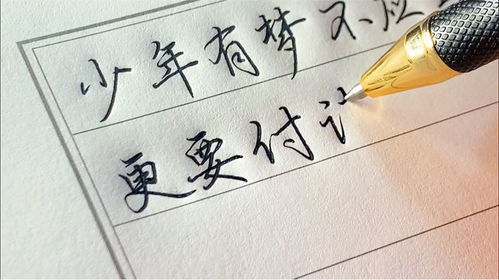 少年有梦不应
更要付